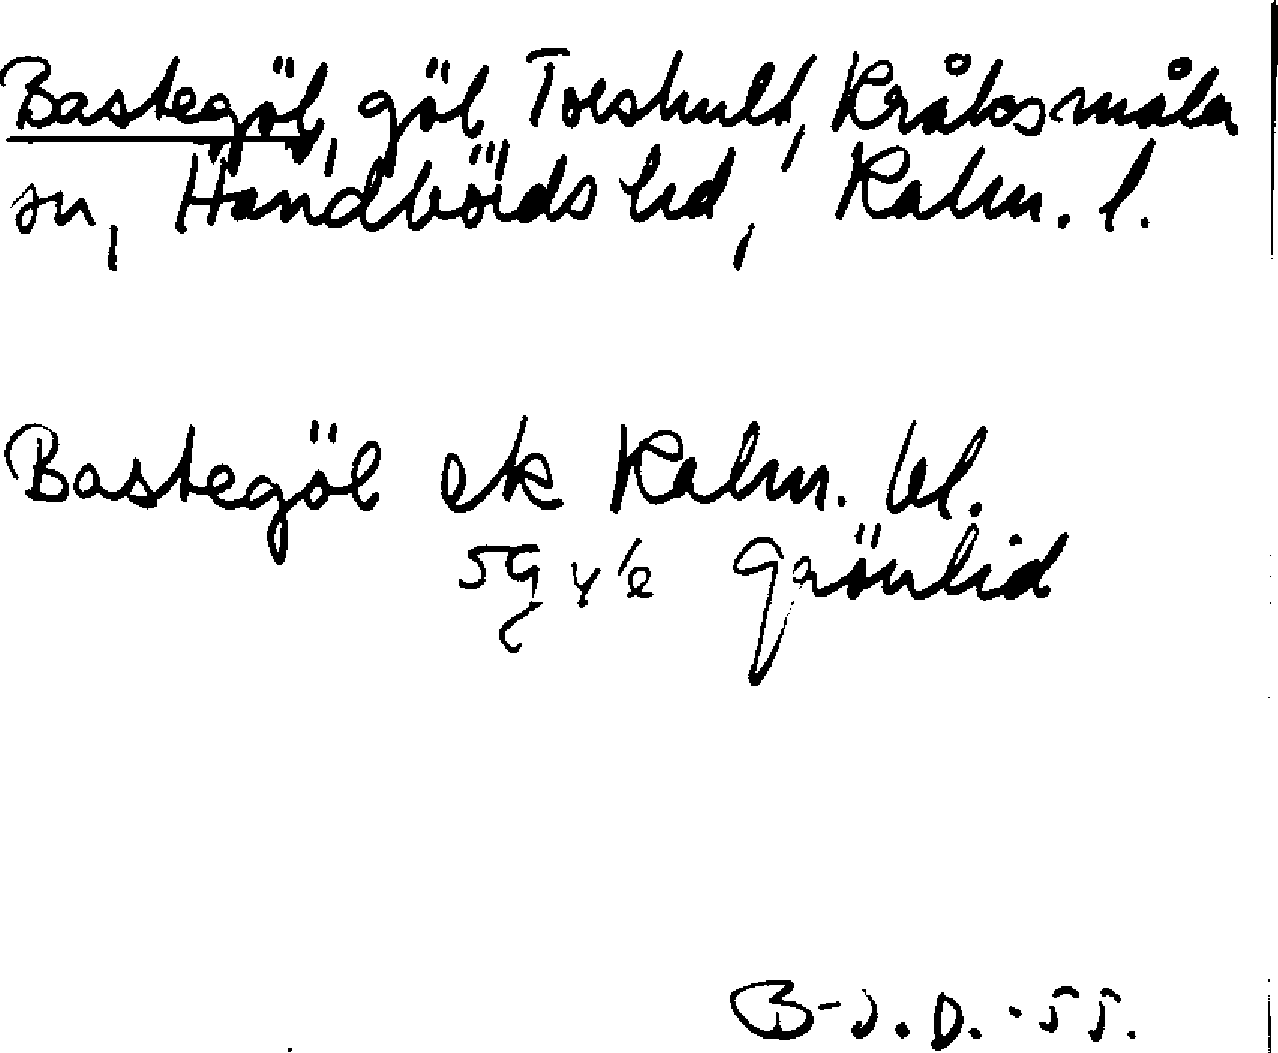 Bastegöl, göl, Toeshult, Kråksmåla
sn, Handbörds hd, Kalm. l.
Bastegöl ek Kalm. bl.
5G Grönlid
B-J. D. -55.